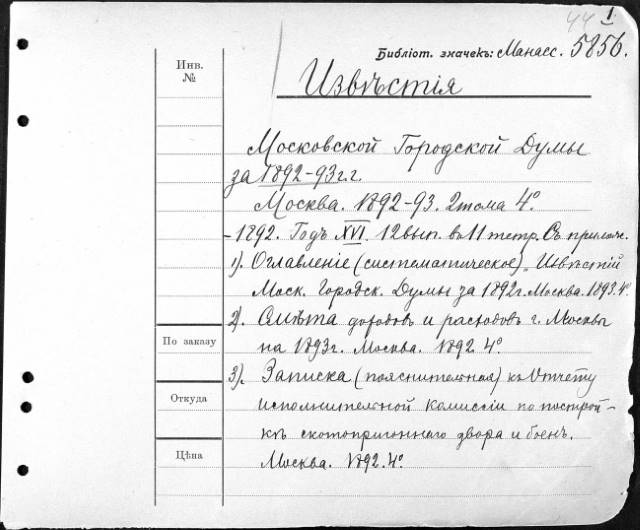 44 1
Библіот. значекъ: Манасс. 5856.
Инв.
№
Извѣстія
Московской Городской Думы
за 1892-93 г.г.
Москва. 1892-93. 2 тома 4º.
-1892. Годъ XVI. 12 вып. въ 11 тетр. Съ прилож.
1). Оглавленіе (систематическое) Извѣстій
Моск. Городск. Думы за 1892 г. Москва. 1893. 4º.
2). Смѣта доходовъ и расходовъ г. Москвы
на 1893 г. Москва. 1892 4º.
По заказу
3). Записка (пояснительная) къ Отчету
Откуда
исполнительной комиссіи по построй-
кѣ скотопригоннаго двора и боенъ.
Цѣна
Москва. 1892. 4º.